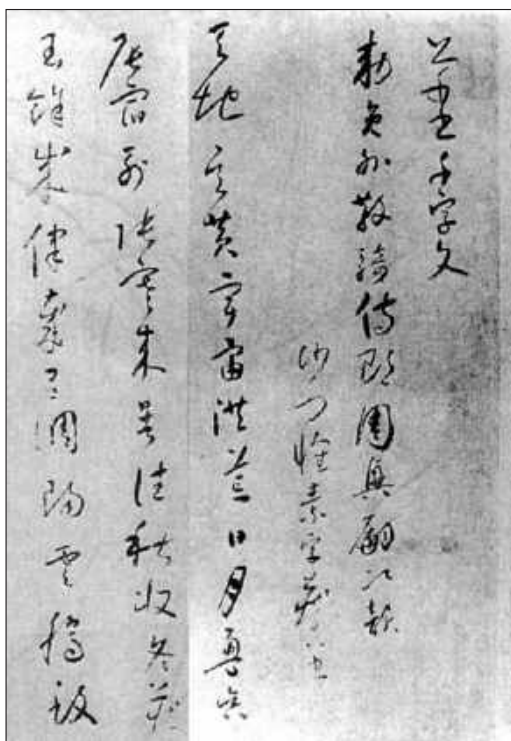 草書千字文
敕員外散騎侍郎周興嗣次韻
沙門懷素字藏真書
天地玄黃宇宙洪荒日月盈昃
辰宿列張寒來暑往秋收冬藏
閏餘成歲律呂調陽雲騰致